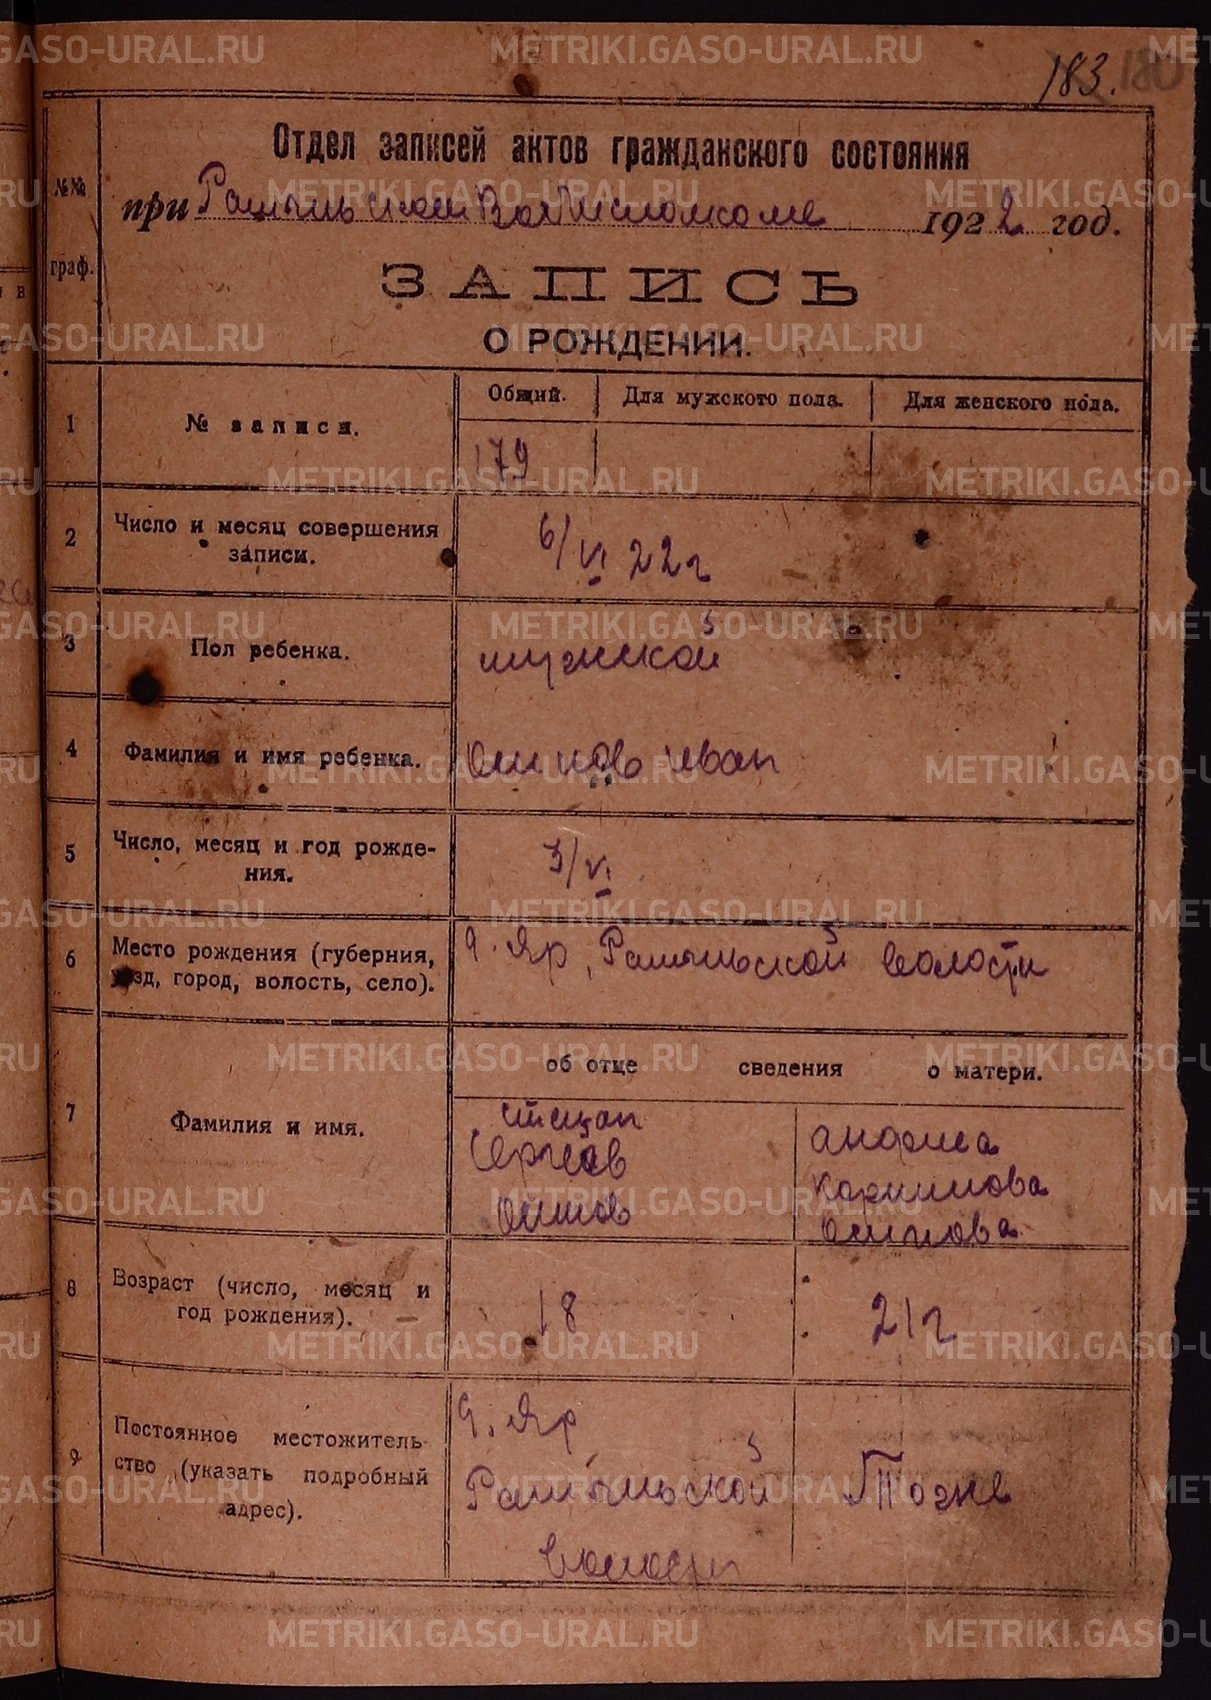 183. 180
Отдел записей актов гражданского состояния
при Волисполкоме 1922 год.
№№ граф.
ЗАПИСЬ
О РОЖДЕНИИ.
1 № записи. Общий. Для мужского пола. Для женского пола.
179
2 Число и месяц совершения
записи.
6/VI 22 г
3 Пол ребенка. мужской
4 Фамилия и имя ребенка. Осипов Иван
5 Число, месяц и год рожде-
ния.
3/VI
6 Место рождения (губерния,
уезд, город, волость, село).
д. Яр, волости
7 Фамилия и имя.
об отце сведения о матери.
Степан
Сергеев
Осипов
Анфиса
Осипова
8 Возраст (число, месяц и
год рождения).
18 21 г
9 Постоянное местожитель-
ство (указать подробный
адрес).
д. Яр
волости
Тоже
METRIKI.GASO-URAL.RU